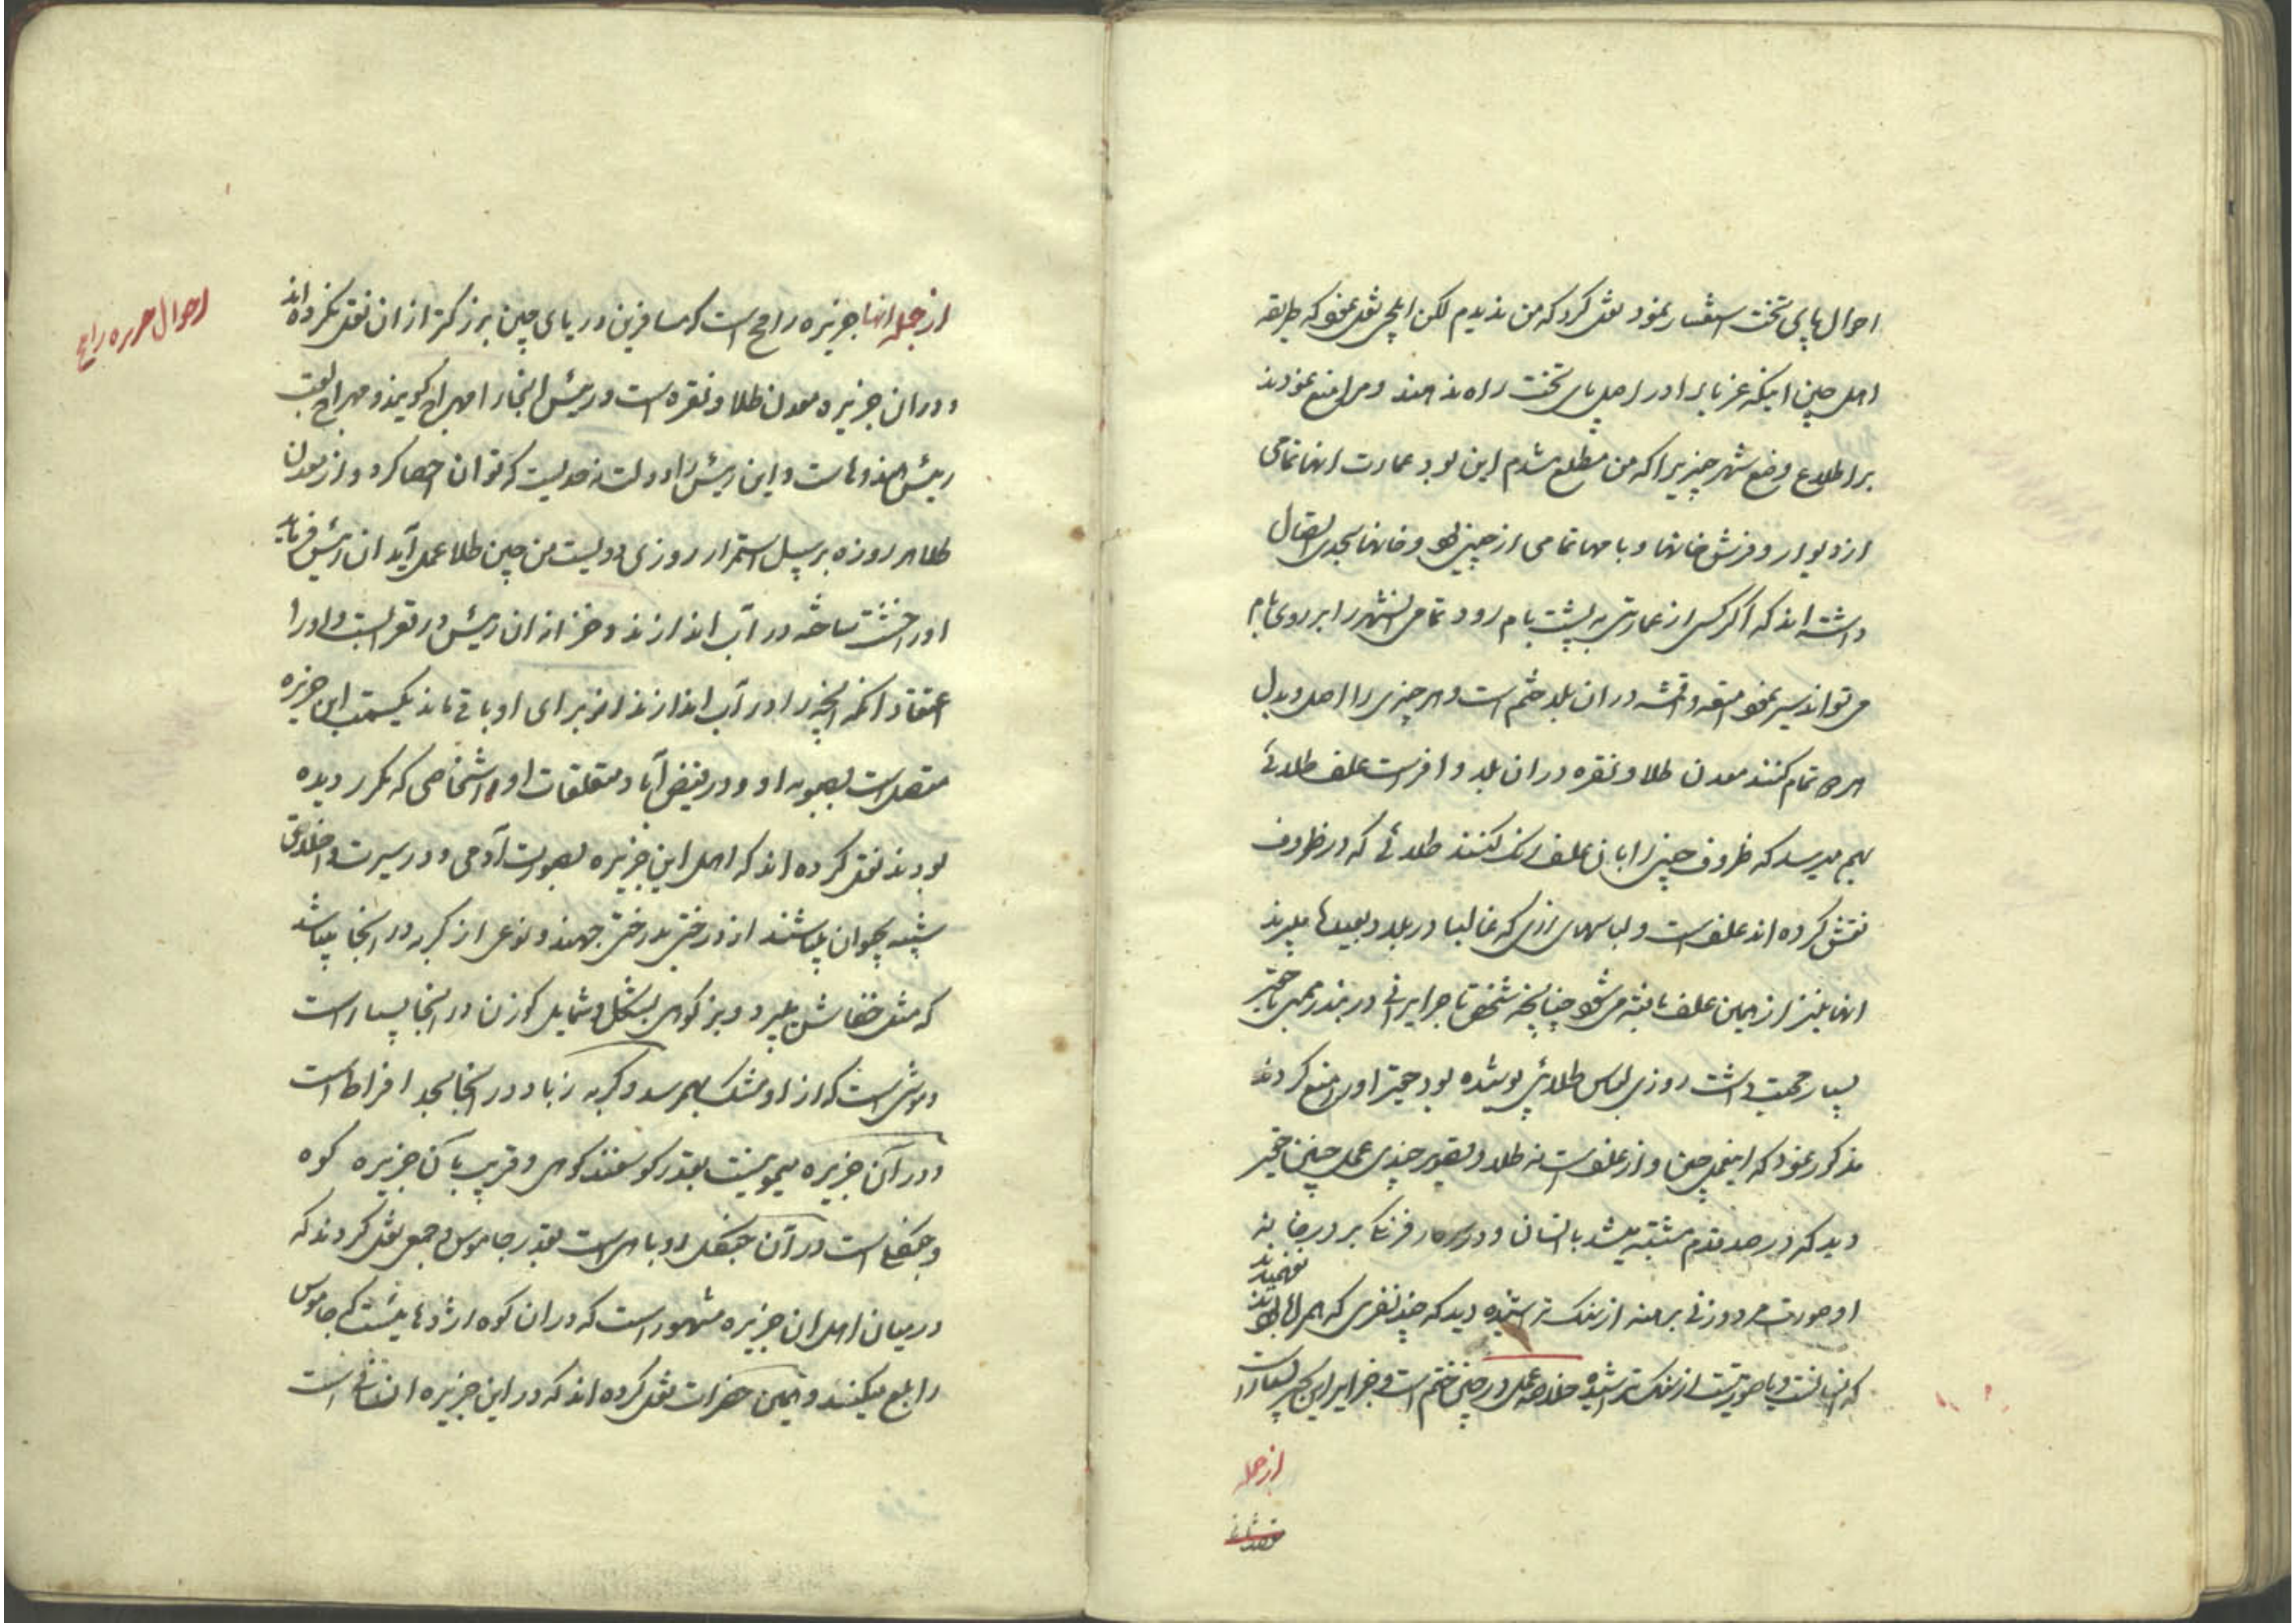 احوال پای تخت استفسار نمود نقل کرد که من ندیدم لکن ایلچی نقل نمود که طریقه
اهل چین اینکه غربا را در اصل پای تخت راه ندهند و مرا منع نمودند
بر اطلاع وضع شهر چیزیرا که من مطلع شدم این بود عمارت انها تمامی
از دیوار و فرش خانها و بامها تمامی از چینی بود و خانها بحدی اتصال
داشته اند که اگر کسی از عمارتی به پشت بام رود تمامی شهر را بر روی بام
می تواند سیر نمود امتعه و اقمشه در ان بلد ختم است و هر چیزی را اهل و بدل
تمام کنند معدن طلا و نقره در ان بلد وافر است علف طلائی
بهم میرسد که ظروف چینی را با ان علف رنگ کنند طلائی که در ظروف
نقش کرده اند علف است و لباسهای زری که غالبا در بلد و بعیدها میبرند
انها نیز از همین علف بافته می شود چنانچه شخص تاجر ایرانی در بندر بمبی با حقیر
بسیار محبت داشت روزی لباس طلائی پوشیده بود حقیر او را منع کردم
مذکور نمود که اینعمل چین و از علف است نه طلا و تصویر چندی عمل چین حقیر
دید که در صد قدم مشتبه میشد بانسان و در سرکار فرنگی بر در خانه
او صورت مرد و زنی برهنه از سنگ تراشیده دید که چند نفری که همراه بودند
نفهمیدند
که انسانست و یا صورتیست از سنگ تراشیده خلاصه عمل در چین ختم است و جزایر این بحر بسیار است
از جمله
ازجمله انها جزیره رامح است که مسافرین دریای چین بزرگتر از ان نقل نکرده اند
و در ان جزیره معدن طلا و نقره است و رئیس انجا را مهراج گویند و مهراج لقب
رئیس هندوهاست و این رئیس را دولت نه حدیست که توان احصا کرد و از معدن
طلا هر روزه بر سبیل استمرار روزی دویست من چین طلا عمل آید ان رئیس فرماید
او را خشت ساخته در آب اندازند و خزانه ان رئیس در قعر ابست و او را
اعتقاد آنکه انچه را در آب اندازند از برای او باقی ماند یکسمت این جزیره
متصل است بصوبه اود و در فیض آباد و متعلقات او اشخاصی که مکرر دیده
بودند نقل کرده اند که اهل این جزیره بصورت آدمی و در سیرت و اخلاق
شبیه بحیوان میباشند از درختی بدرختی جهند و نوعی از گربه در انجا میباشد
که مثل خفاش میپرد و بز کوهی بشکل و شمایل گوزن در انجا بسیار است
و موشی است که از او مشک بهم رسد و گربه زباد در انجا بحد افراط است
و در آن جزیره میمونیست بقدر گوسفند کوهی و قریب بآن جزیره کوه
و جنگلی است در آن جنگل روباهی است بقدر جاموس و جمعی نقل کردند که
در میان اهل ان جزیره مشهور است که در ان کوه اژدهائیست که جاموس
را بلع میکند و همین حضرات نقل کرده اند که در این جزیره انسانی است
احوال جزیره رامح